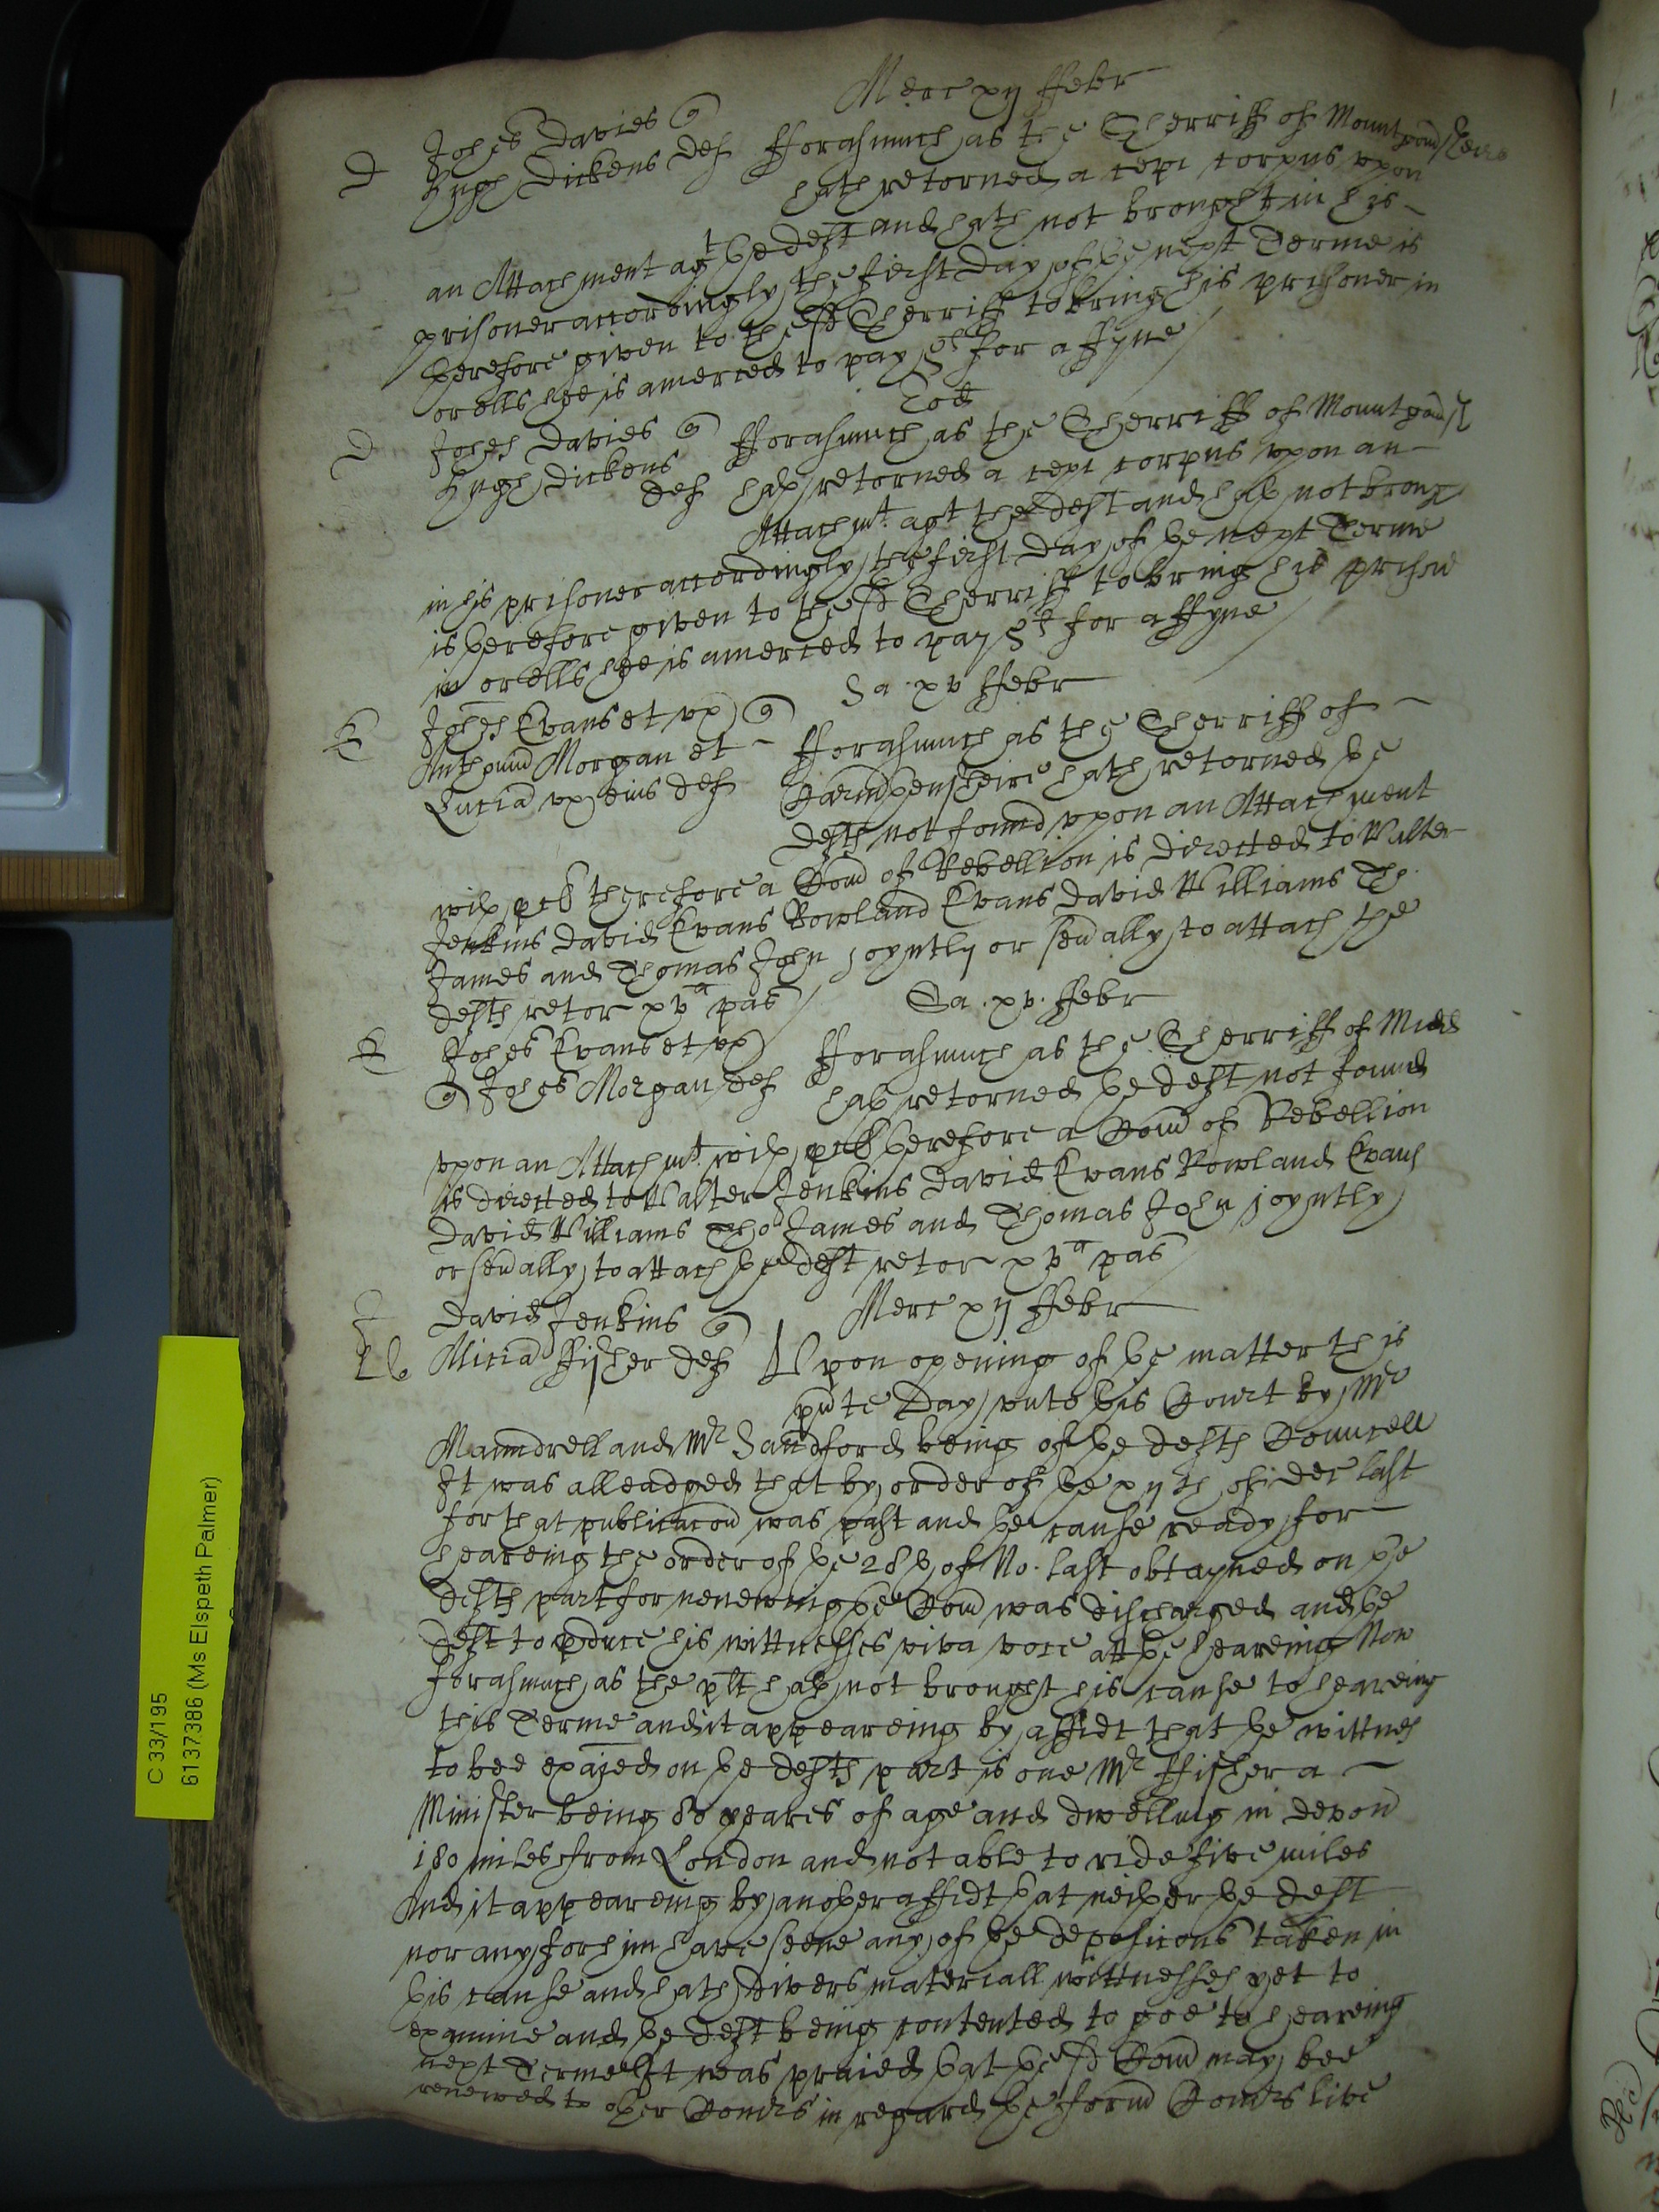 Merc xij ffebr
D
Johes Davies q
Hugh Dickens def fforasmuch as the Sherriff of Mountgom sheire
hath retorned a cepi corpus vpon
an Attachment agt ye Deft and hath not brought in his
prisoner accordingly the first day of ye next Terme is
yerefore given to the sd Sherriff to bring his prisoner in
or ells hee is amerced to pay for a ffyne
Eod
D
Johes Davies q fforasmuch as the Sherriff of Mountgom sh
Hugh Dickens
def hath retorned a cepi corpus vpon an
Attachmt agt the deft and hath not broug
in his prisoner accordingly the first day of ye next Terme
is yerefore given to the sd Sherriff to bring his prison
in or ells hee is amerced to pay for a ffyne
Sa. xv ffebr
E
Johes Evans et vx q
Anthonium Morgan et fforasmuch as the Sherriff of
Lucia vx eius def Carmthenshire hath retorned ye
defts not found vpon an Attachment
with procl therefore a Com of Rebellion is directed to Walter
Jenkins David Evans Rowland Evans David Williams Th.
James and Thomas John joyntly or seually to attach the
defts retor xva pas
Sa. xv. ffebr
E
Johes Evans et vx fforasmuch as the Sherriff of Midd
q Johes Morgan def hath retorned ye deft not found
vpon an Attachmt with procl yerefore a Com of Rebellion
is directed to Walter Jenkins David Evans Rowland Evans
David Williams Tho James and Thomas John joyntly
or seually to attach ye deft retor xva pas
Merc xij ffebr
J
David Jenkins q
Lb
Alicia ffisher def Vpon opening of ye matter this
pnte Day vnto this Court by Mr
Maundrell and Mr Sandford being of ye defts Councell
It was alleadged that by order of ye xijth of dec last
for that publicacon was past and ye cause ready for
heareing the order of ye 28th of No. last obtayned on ye
defts part for renewing ye Com was discharged and ye
Deft to pduce his wittnesses viva voce att ye heareing Now
forasmuch as the plt hath not brought his cause to heareing
this Terme and it appeareing by affidt that ye wittnes
to bee exaied on ye defts part is one Mr ffisher a
Minister being 80 yeares of age and dwelling in devon
180 miles from London and not able to ride five miles
And it appeareing by anoyer affidt yat neither ye deft
nor any for him have seene any of ye deposicons taken in
this cause and hath divers materiall wittnesses yet to
examine and ye deft being contented to goe to heareing
next Terme It was praied yat ye sd Com may bee
renewed to oyer Comrs in regard ye form Comrs live
C 33/195
6137386 (Ms Elspeth Palmer)